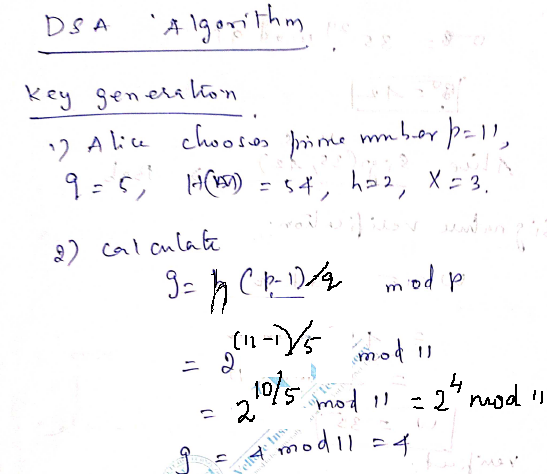 DSA Algorithm
Key generation
1) Alice chooses prime number p=11,
q=5, H(M) = 54, h=2, X=3.
2) calculate
g= h (p-1)/q mod p
= 2 (11-1)/5 mod 11
= 2 10/5 mod 11 = 2^4 mod 11
g = 4 mod 11 = 4